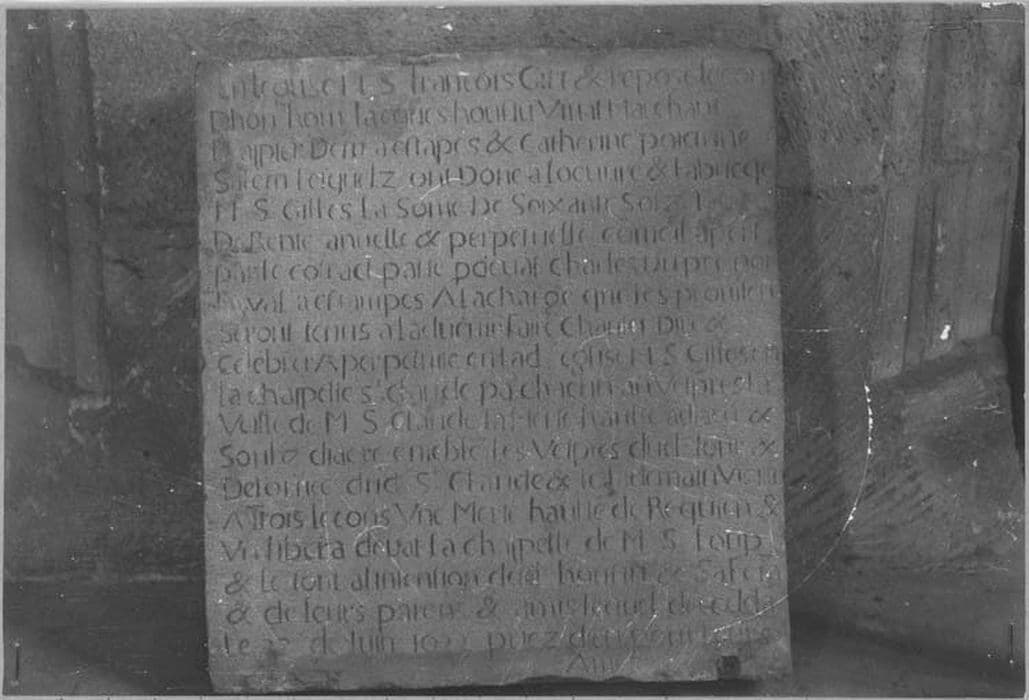 M S francois Cy & repose le corps
Dhon hom Jacques houtin Vivat Marchant
Drapier Dem a estapes & Catherine poictevine
Sa fem Lesquelz ont Done a locuure & fabricqe
M S Gilles La Some De Soixante Solz T
De Rente anuelle & perpetuelle come il apert
par le cotract passe pdeuat Charles Dupre not
Royal a estampes A la charge que les
Seront tenus a laduenir faire Chanter Dire &
Celebrer A perpetuite en lad eglise M S Gilles en
la chappelle St claude pa chacun an Vespres la
Veille de M S Claude la Messe haulte a diacre &
Soubz diacre emeble les Vespres dud Iour &
De loffice dud St Claude & le l demain Vigile
A Trois lecons Vne Messe haulte de Requiem &
Vn libera deuat la chappelle de M S Loup
& le tout a lintention dud houtin & Sa fem
& de leurs parens & amis lequel deceda
Le 22 de Iuin 16 priez dieu pour leurs
Ames